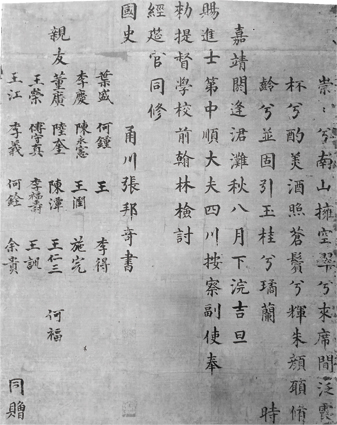 崇〻兮南山擁空翠兮來席間泛霞
杯兮酌美酒照蒼鬢兮輝朱顏 脩
齡兮並固引玉桂兮璚蘭 時
嘉靖閼逢涒灘秋八月下浣吉旦
賜進士第中順大夫四川按察副使奉
勑提督學校前翰林檢討
經筵官同修
國史 甬川張邦奇書
葉盛 何鍾 王 李得
李慶 陳永憲 王潤 施完
親友董廣 陸奎 陳潭 王仁三 何福
王榮 傅守真 李福壽 王
王江 李義 何銓 余貴 同贈